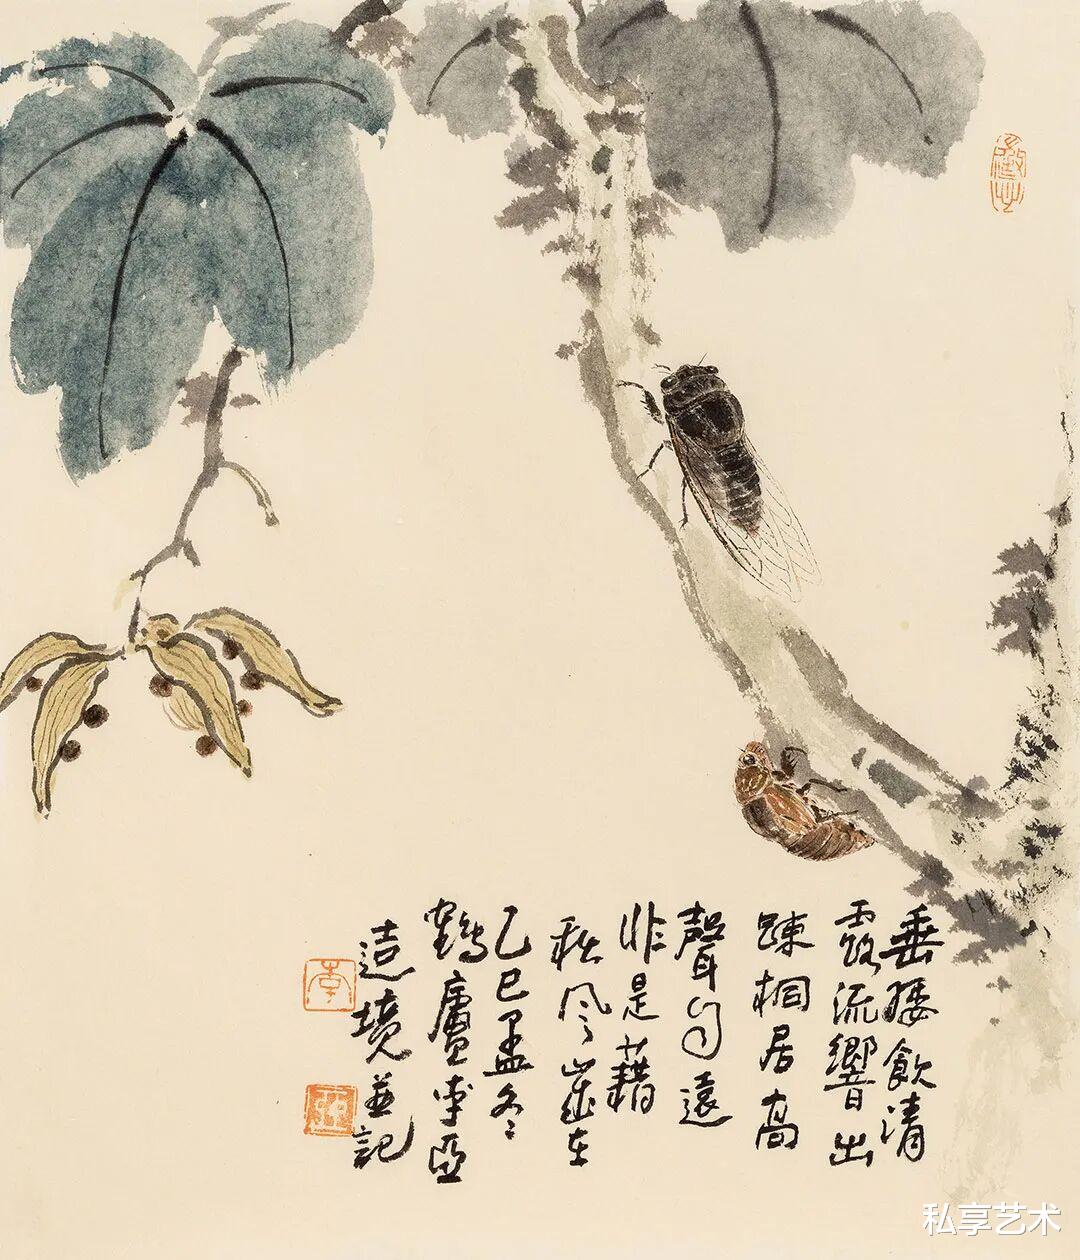 垂緌飲清
露流響出
踈桐居高
聲自遠
非是藉
秋風歲在
乙巳孟冬
鶴廬李亞
造境並記
李
亞
私享艺术